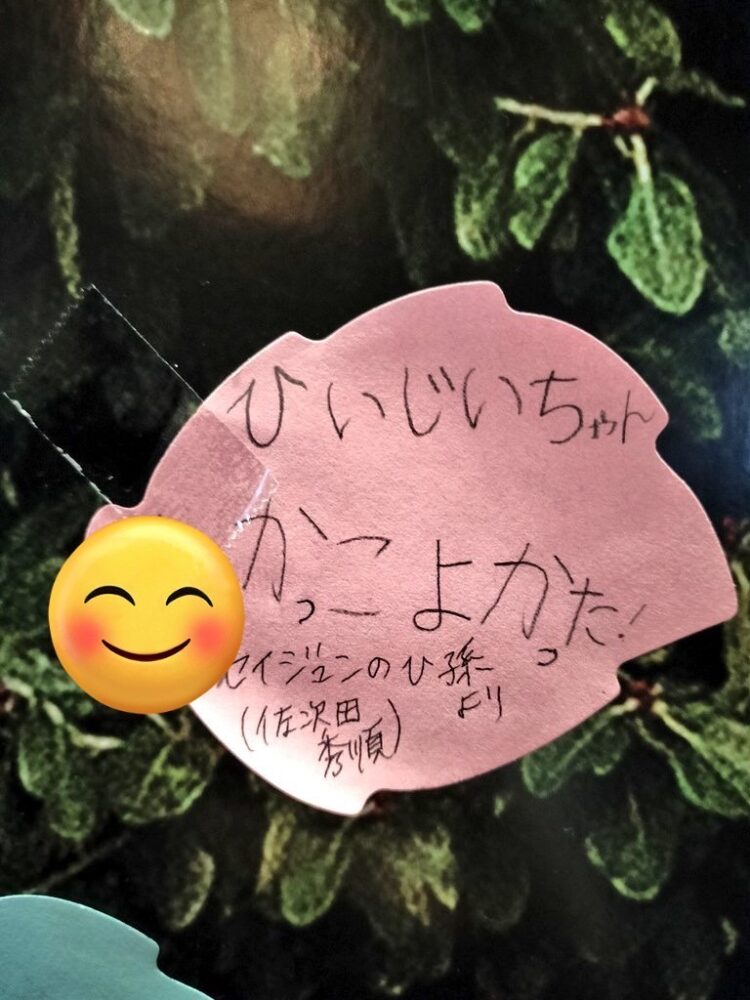 ひいじいちゃん
かっこよかった!
セイジュンのひ孫より
(佐次田秀順)